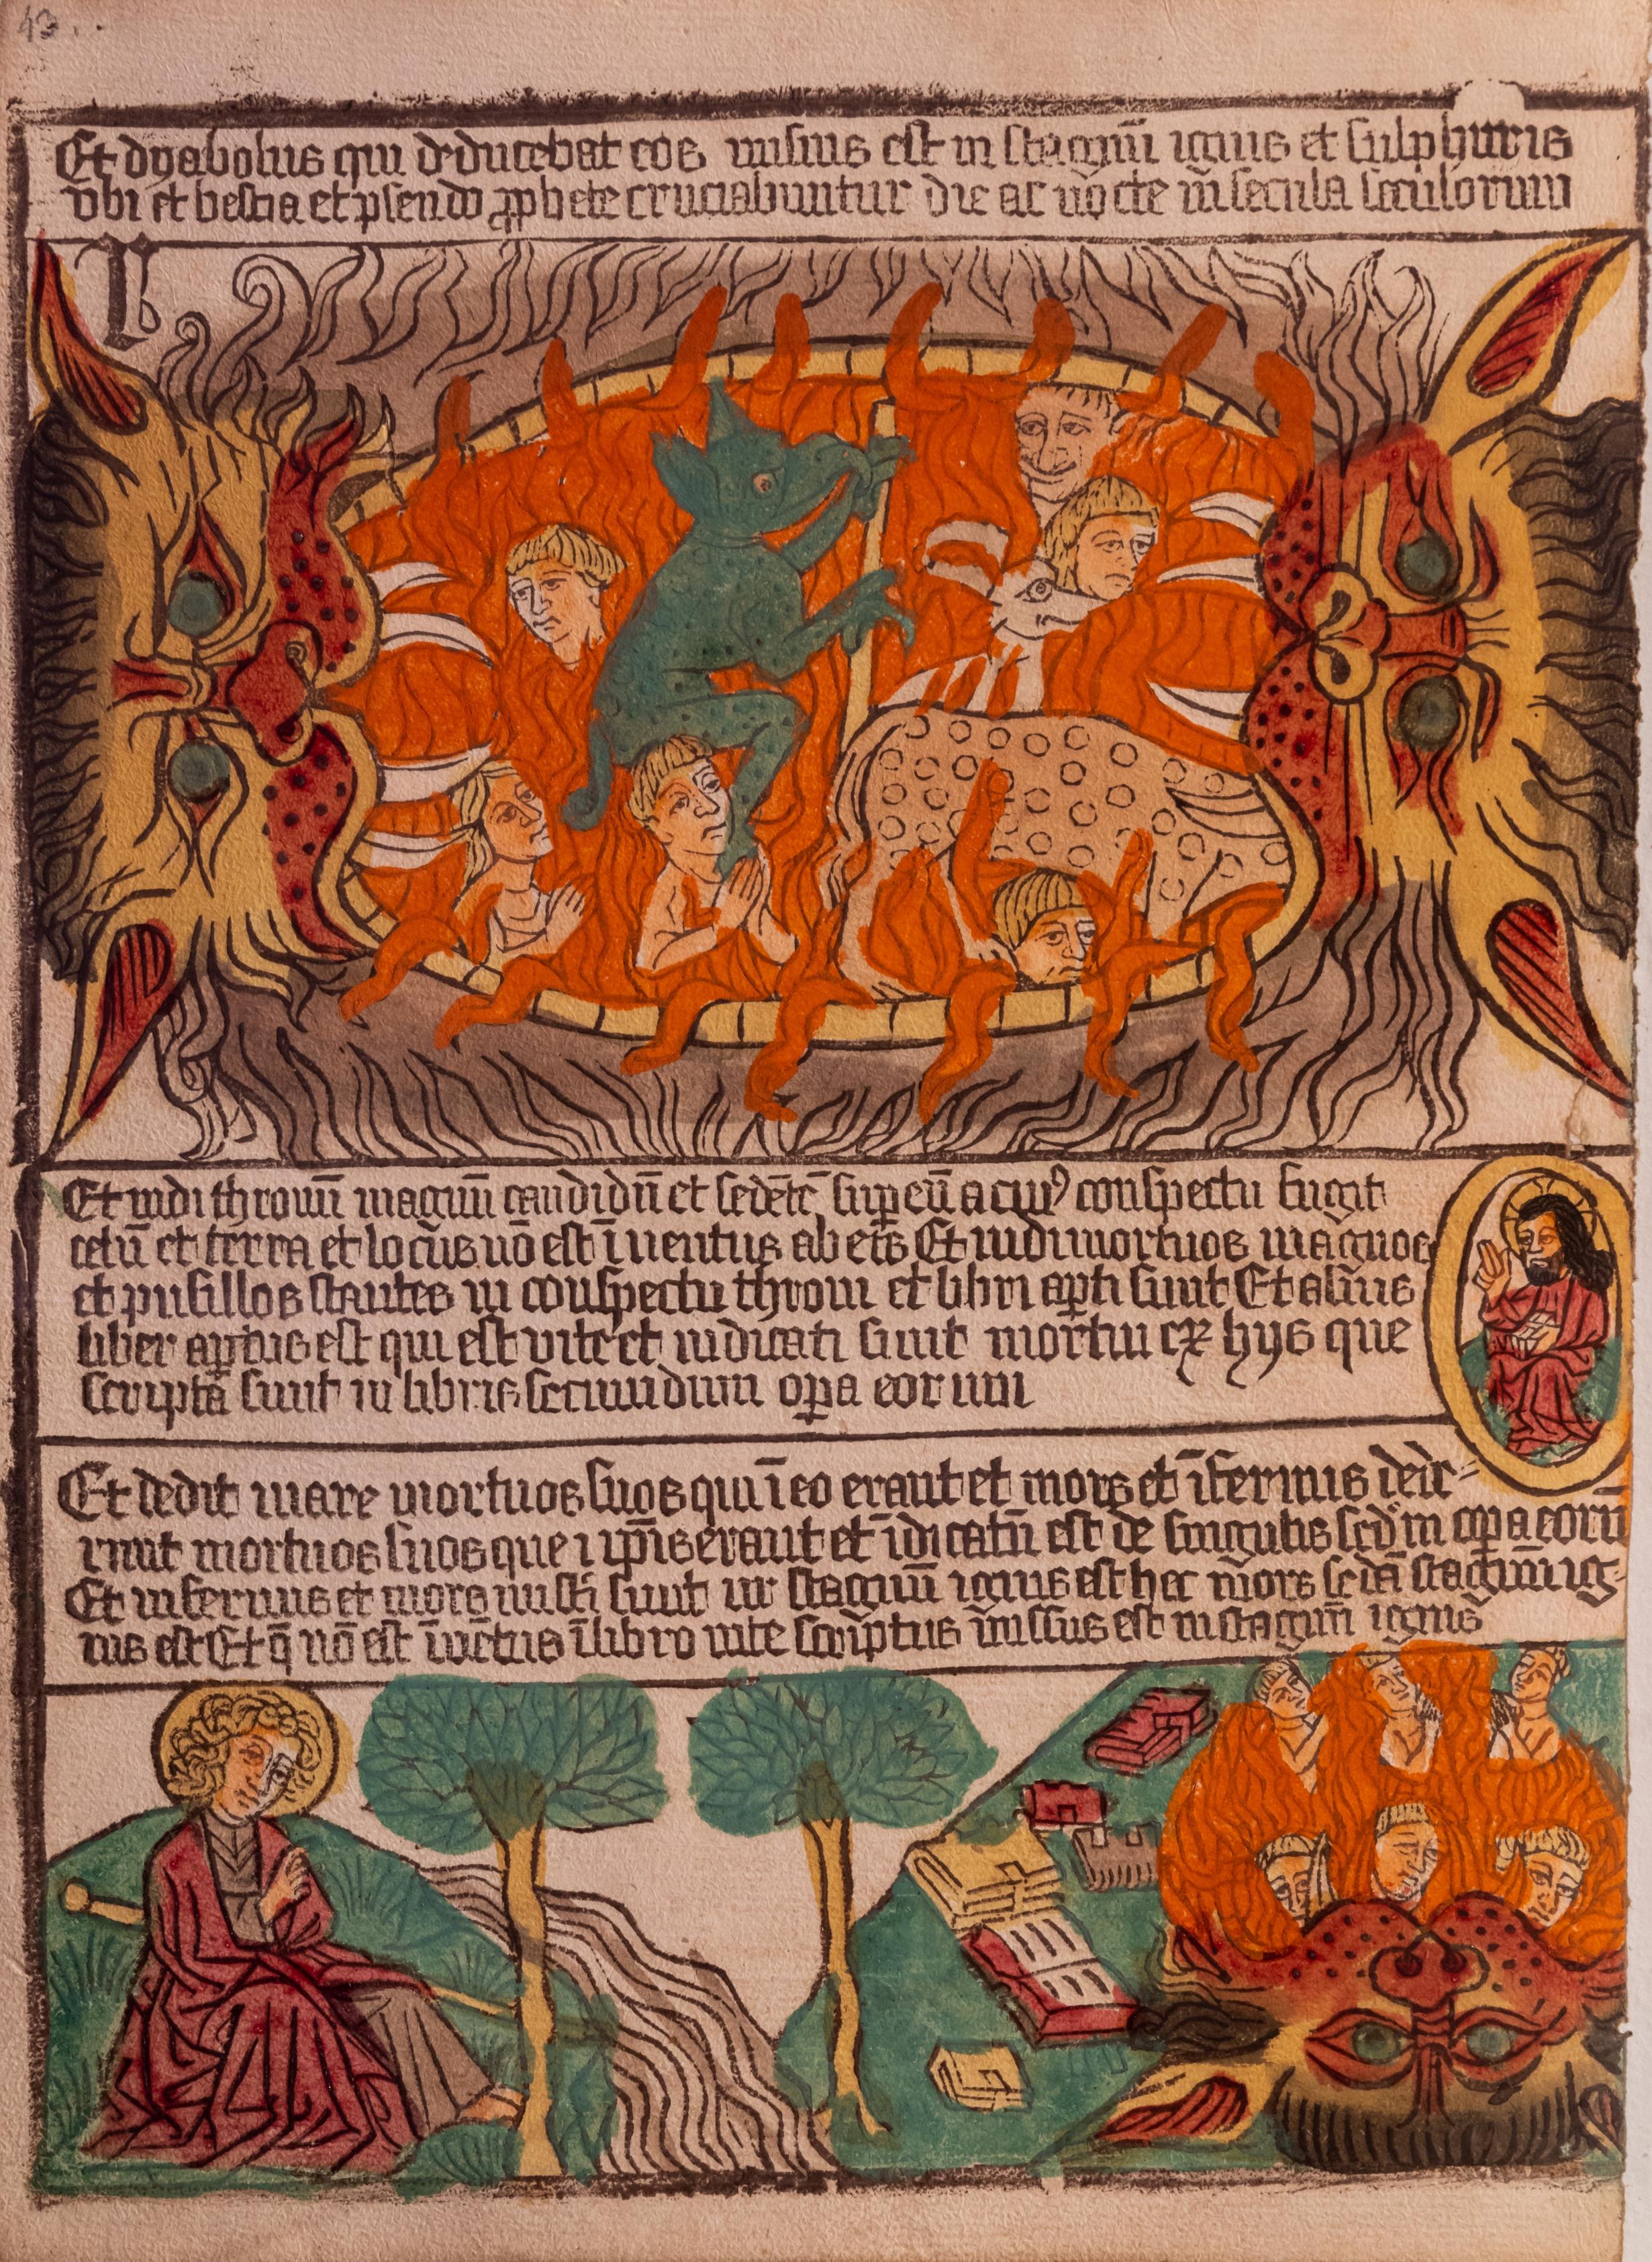 43
Et dyabolus qui deducebat eos missus est in stagnū ignis et sulphuris
vbi et bestia et pseudo ꝓphete cruciabuntur die ac nocte in secula seculorum
Et vidi thronū magnū candidū et sedētē sup eū a cuiꝰ conspectu fugit
celū et terra et locus nō est īuentus ab eis Et vidi mortuos magnos
et pusillos stantes in conspectu throni et libri apti sunt Et alius
liber aptus est qui est vite et iudicati sunt mortui ex hys que
scripta sunt in libris secundum opa eorum
Et dedit mare mortuos suos qui ī eo erant et mors et īfernus dede
runt mortuos suos que ī ipis erant et iudicatū est de singulis scdm opa eorū
Et infernus et mors missi sunt in stagnū ignis est hec mors scda stagnū ig-
nis est Et q̄ nō est īuētus ī libro vite scriptus missus est in stagnū ignis